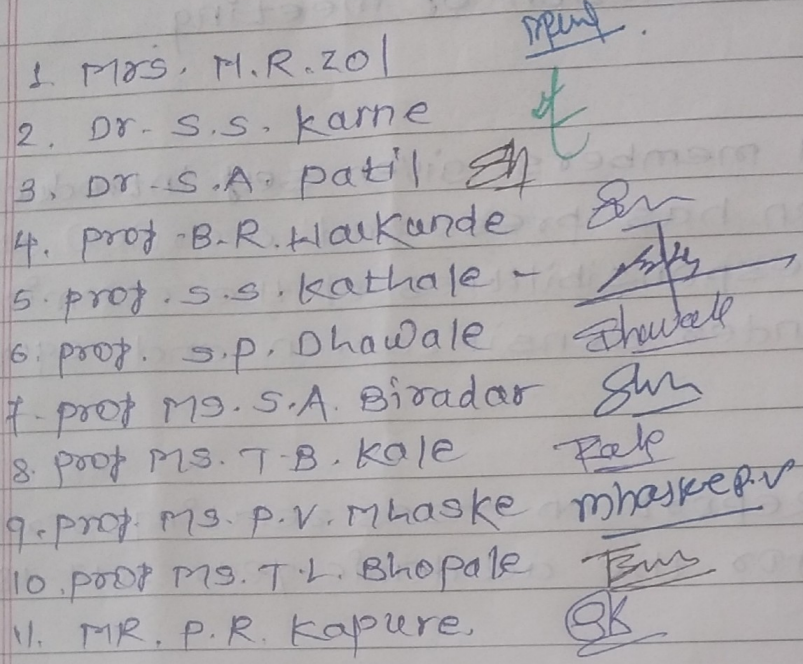 1. Mrs. M.R. Zol
2. Dr. S.S. Karne
3. Dr. S.A. Patil
4. prof B.R. Halkunde
5. prof. S.S. Kathale -
6. prof. S.P. Dhawale Dhawale
7. prof MS. S.A. Biradar
8. prof MS. T.B. Kale Kale
9. prof. MS. P.V. Mhaske Mhaske P.V
10. prof MS. T.L. Bhopale
11. MR. P.R. Kapure.